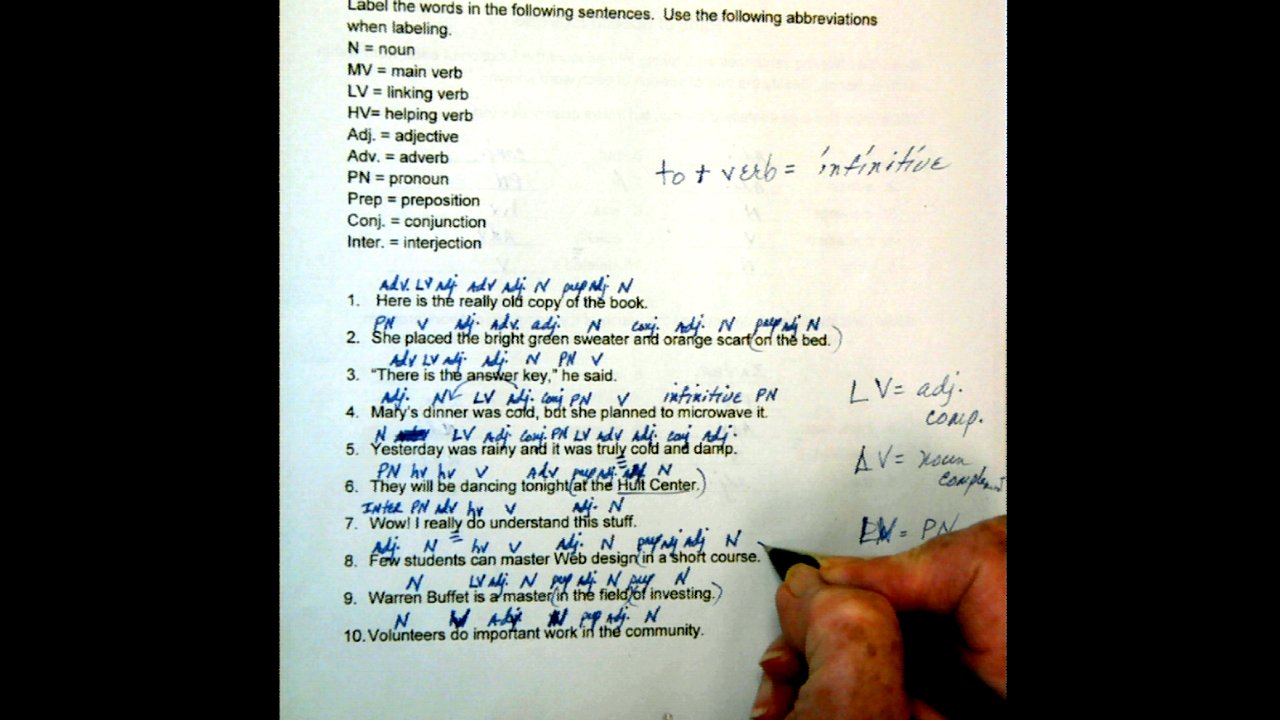 Label the words in the following sentences. Use the following abbreviations
when labeling.
N = noun
MV = main verb
LV = linking verb
HV= helping verb
Adj. = adjective
Adv. = adverb
PN = pronoun
Prep = preposition
Conj. = conjunction
Inter. = interjection
to + verb = infinitive
Adv. LV Adj. Adv Adj. N prep Adj. N
1. Here is the really old copy of the book.
PN V Adj. Adv. adj. N conj. Adj. N prep Adj N
2. She placed the bright green sweater and orange scarf (on the bed.)
Adv LV Adj. Adj. N PN V
3. "There is the answer key," he said.
Adj. N LV Adj. conj PN V infinitive PN
4. Mary's dinner was cold, but she planned to microwave it.
N LV Adj conj. PN LV adv Adj. conj Adj.
5. Yesterday was rainy and it was truly cold and damp.
PN hv hv V Adv prep Adj. N
6. They will be dancing tonight (at the Hult Center.)
Inter PN adv hv V Adj. N
7. Wow! I really do understand this stuff.
Adj. N hv V Adj. N prep Adj adj N
8. Few students can master Web design (in a short course.
N LV Adj. N prep Adj N prep N
9. Warren Buffet is a master (in the field) (of investing.)
N Adj N prep Adj. N
10. Volunteers do important work in the community.
LV = adj.
comp.
LV = noun
LV = PN